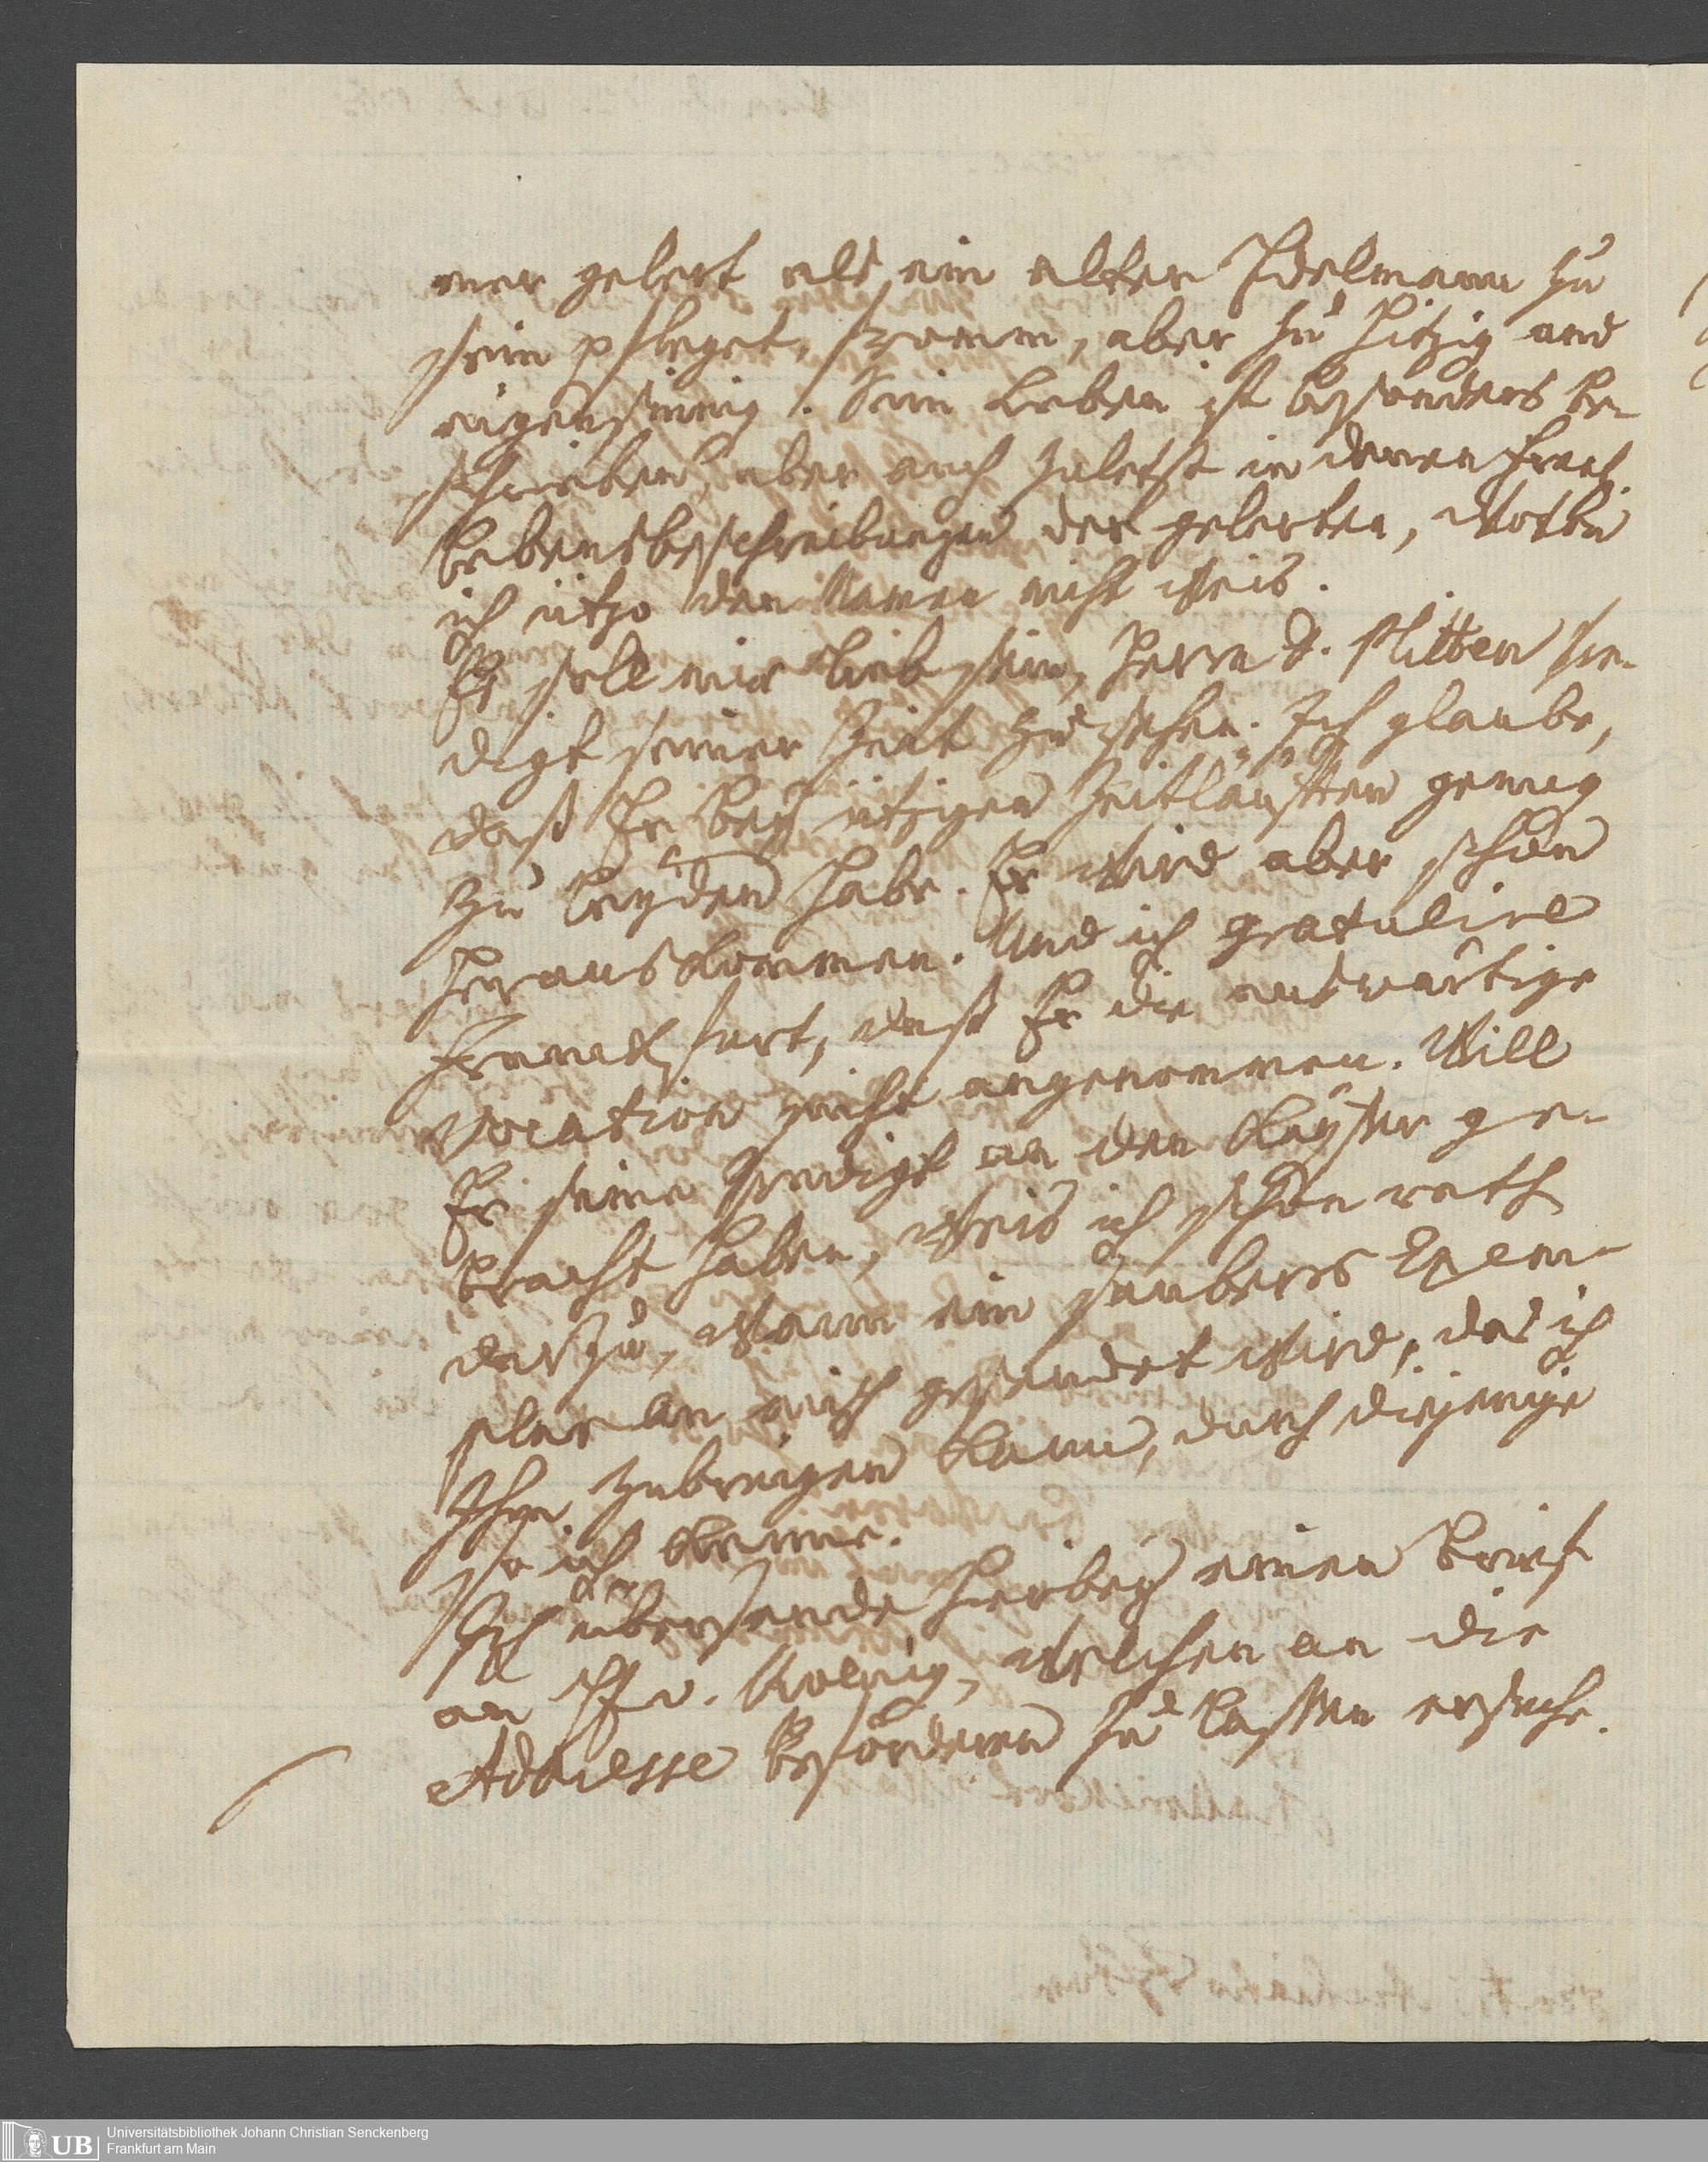 mer gelert als ein alter Edelmann zu
sein pfleget, fromm, aber zu hitzig und
eigensinnig. Sein Leben ist besonders be-
schrieben, aber auch zuletzt in denen
Lebensbeschreibungen der gelerten, wovon
ich itzo den Namen nicht weis.
Es soll mir lieb sein, Herrn D. Plitten Pre-
digt seiner Zeit zu sehen. Ich glaube,
daß Er bey itzigen Zeitläufften genug
zu leyden habe. Er wird aber schon
herauskommen. Und ich gratulire
Franckfurt, daß Er die auswärtige
vocation nicht angenommen. Will
Er seine Predigt an den Kayser ge-
bracht haben, weis ich schon rath
darzu, wann ein sauberes Exem-
plar an mich gesendet wird, das ich
Ihm zubringen kann, durch diejenige
so ich kenne.
Ich übersende hierbey einen Brief
an H. v. , welchen an die
Addresse befördern zu lassen ersuche.
UB
Universitätsbibliothek Johann Christian Senckenberg
Frankfurt am Main